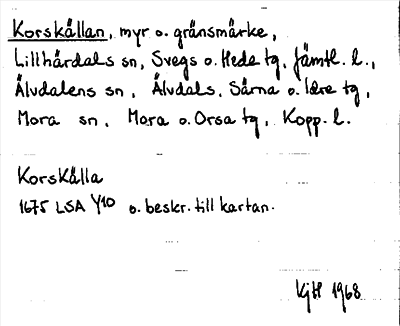 Korskällan, myr o. gränsmärke,
Lillhärdals sn, Svegs o. Hede tg, Jämtl. l.,
Älvdalens sn, Älvdals, Särna o. Idre tg,
Mora sn, Mora o. Orsa tg, Kopp. l.
Korskälla
1675 LSA Y10 o. beskr. till kartan.
KjH 1968